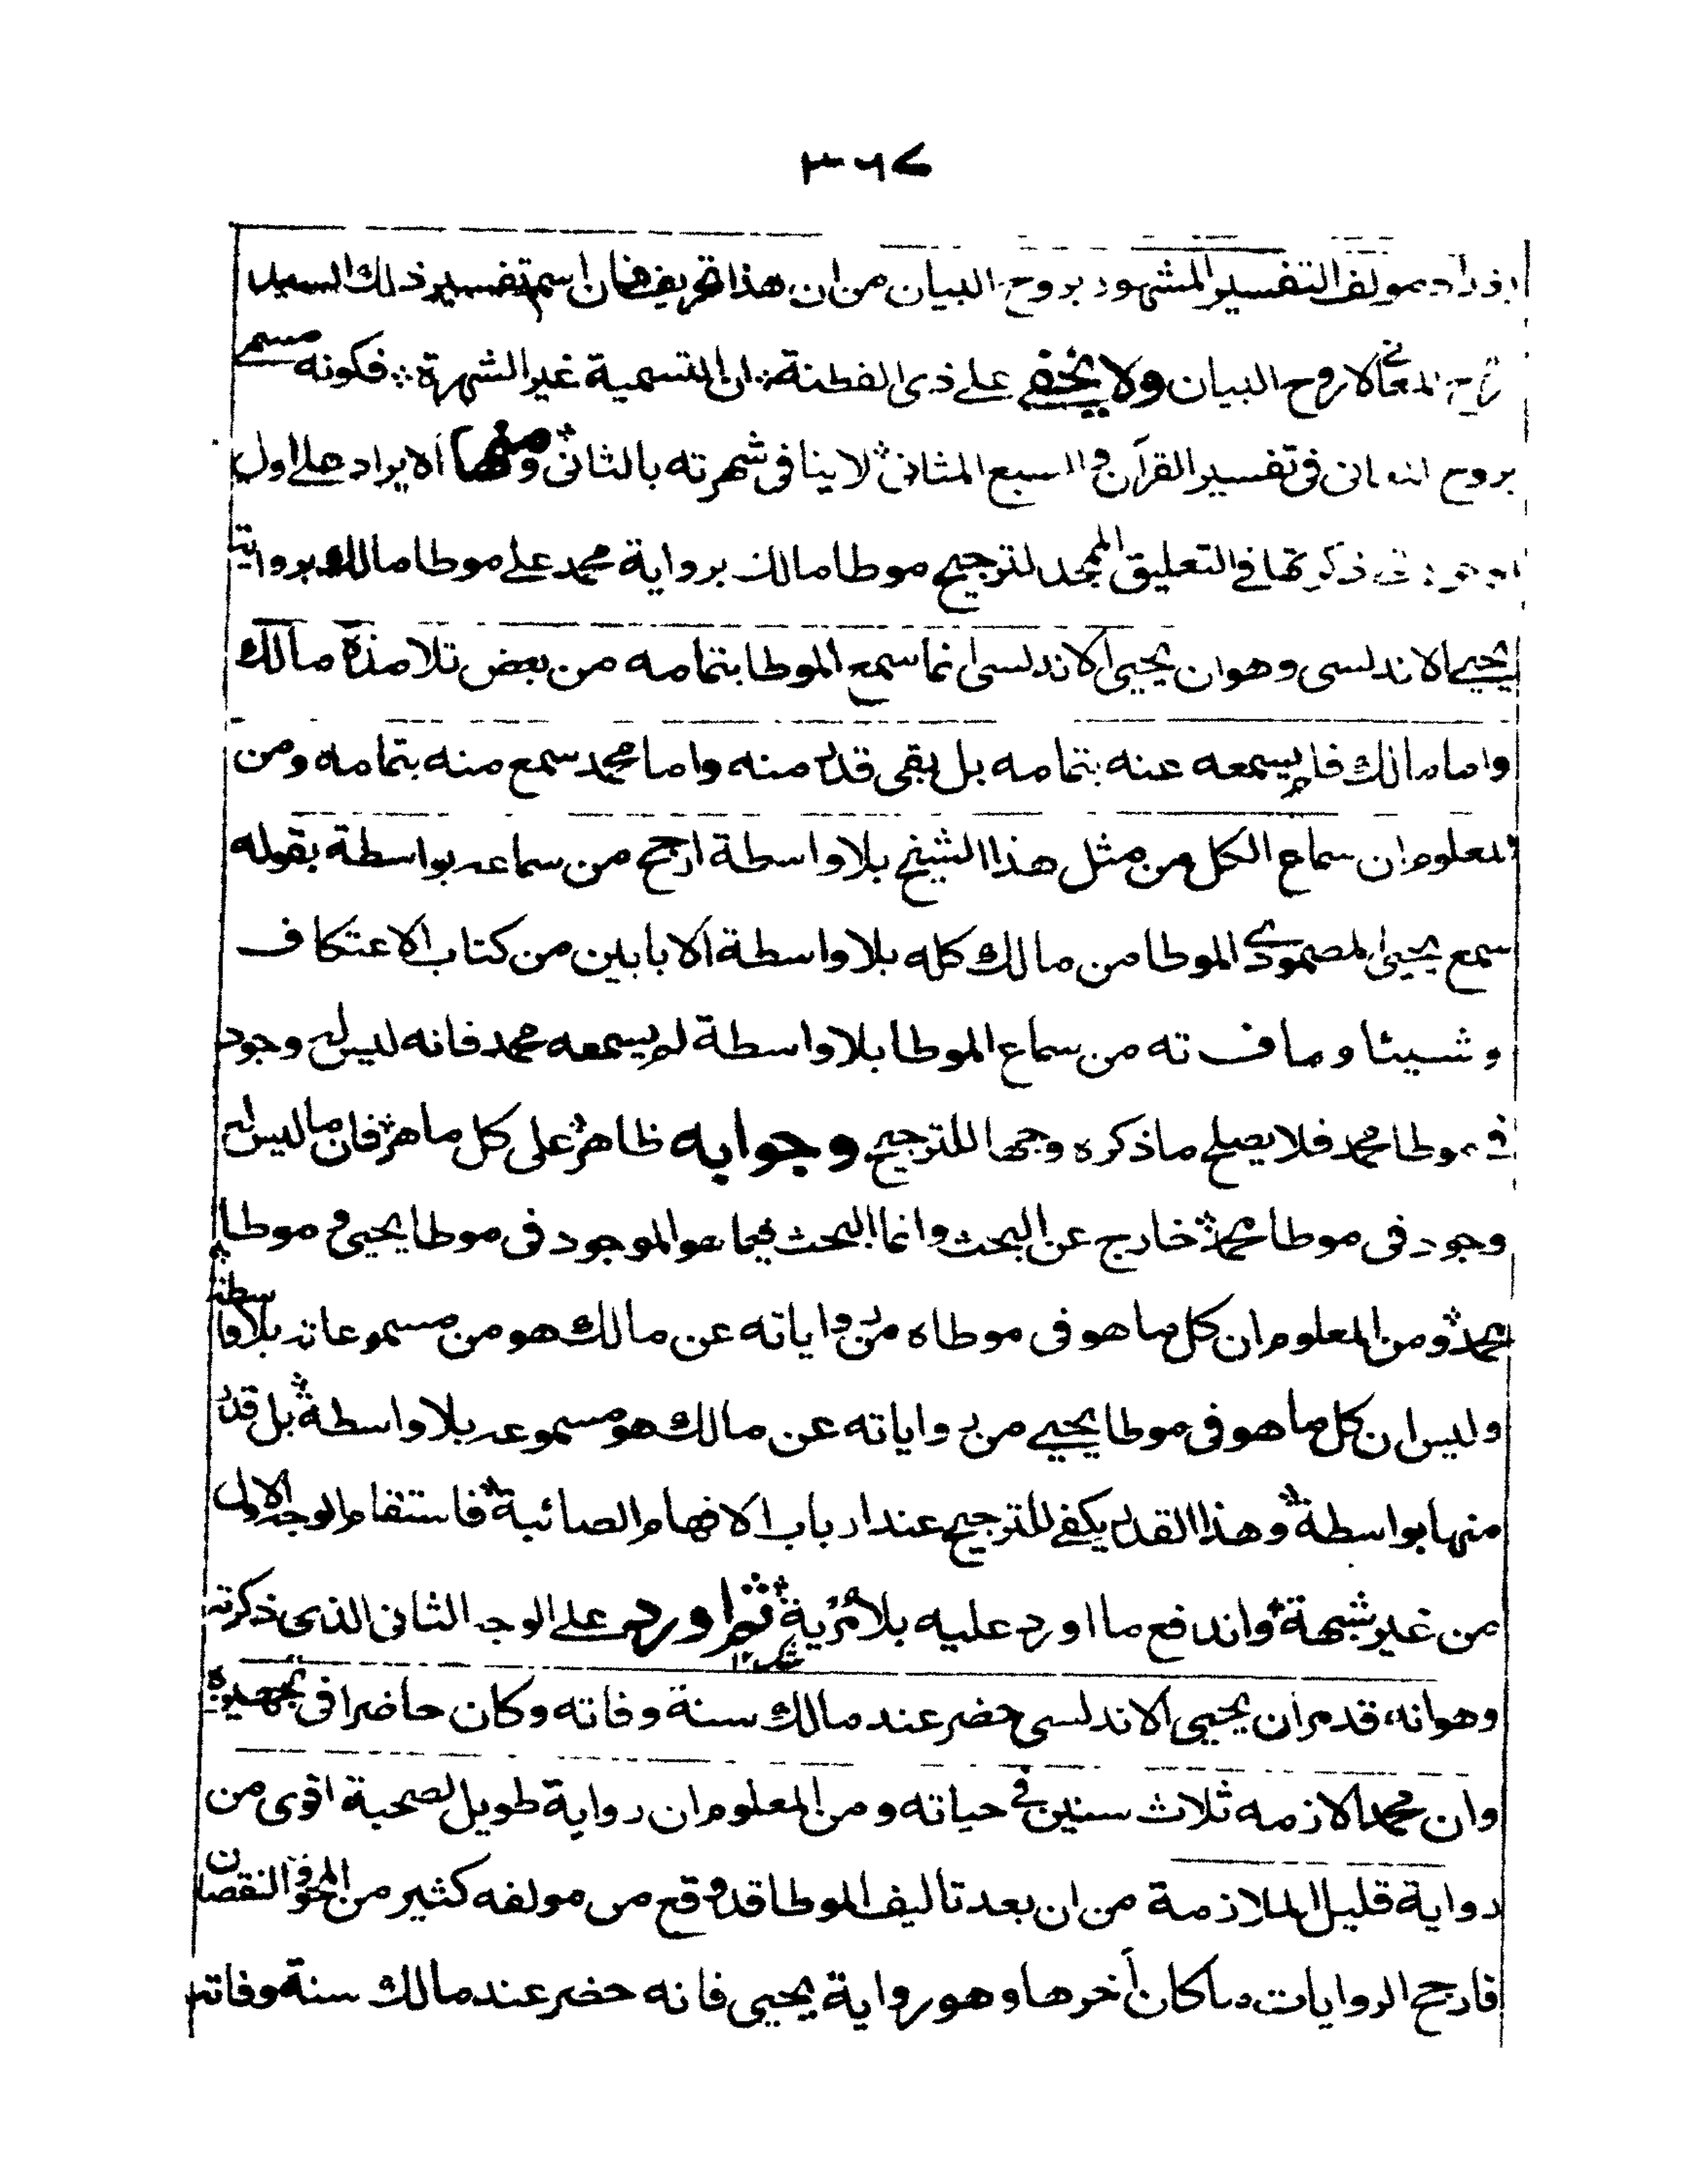 ۳۶۷
بغداد مولف التفسير المشهور بروح البيان من ان هذا تحريف فان اسم تفسير ذلك السيد
روح المعاني لا روح البيان ولا يخفى على ذى الفطنة ان التسمية غير الشهرة فكونه مسمى
بروح المعانى فى تفسير القرآن و السبع المثانى لا ينافى شهرته بالثانى ومنها الايراد على اول
ذكرتها في التعليق الممجد لترجيح موطا مالك برواية محمد على موطا مالك برواية
يحيى الاندلسى وهو ان يحيى الاندلسى انما سمع الموطا بتمامه من بعض تلامذة مالك
واما مالك فلم يسمعه عنه بتمامه بل بقى قدر منه واما محمد سمع منه بتمامه ومن
المعلوم ان سماع الكل من مثل هذا الشيخ بلا واسطة ارجح من سماعه بواسطة بقوله
سمع يحيى المصمودى الموطا من مالك كله بلا واسطة الا بابين من كتاب الاعتكاف
وشيئا وما فاته من سماع الموطا بلا واسطة لم يسمعه محمد فانه ليس له وجود
فى موطا محمد فلا يصلح ما ذكره وجها للترجيح وجوابه ظاهر على كل ماهر فان ما ليس له
وجود فى موطا محمد خارج عن البحث وانما البحث فيما هو الموجود فى موطا يحيى و موطا
محمد ومن المعلوم ان كل ما هو فى موطاه من رواياته عن مالك هو من مسموعاته بلا واسطة
وليس ان كل ما هو فى موطا يحيى من رواياته عن مالك هو مسموعه بلا واسطة بل قدر
منها بواسطة وهذا القدر يكفى للترجيح عند ارباب الافهام الصائبة فاستقام الوجه الاول
من غير شبهة واندفع ما اورد عليه بلا مرية ثم اورد على الوجه الثانى الذى ذكرته
شك ١٢
وهو انه قد مر ان يحيى الاندلسى حضر عند مالك سنة وفاته وكان حاضرا فى تجهيزه
وان محمدا لازمه ثلاث سنين فى حياته ومن المعلوم ان رواية طويل الصحبة اقوى من
رواية قليل الملازمة من ان بعد تاليف الموطا قد وقع من مولفه كثير من المحو والنقصان
فارجح الروايات ما كان أخرها وهو رواية يحيى فانه حضر عند مالك سنة وفاته